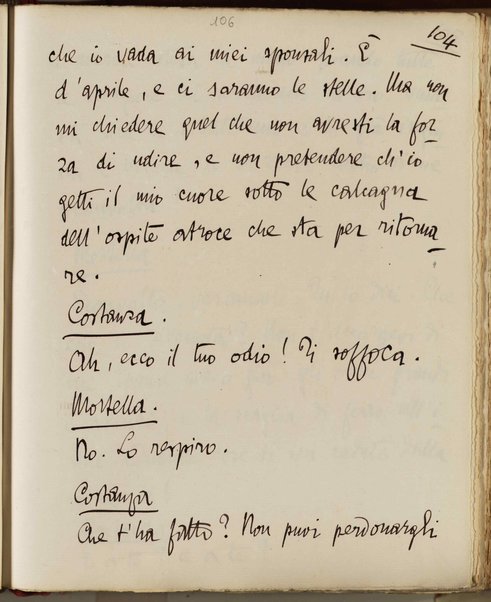 106
104
che io vada ai miei sponsali. È
d'aprile, e ci saranno le stelle. Ma non
mi chiedere quel che non avresti la for
za di udire, e non pretendere ch'io
getti il mio cuore sotto le calcagna
dell'ospite atroce che sta per ritorna
re.
Costanza.
Ah, ecco il tuo odio! Ti soffoca.
Mortella.
No. Lo respiro.
Costanza
Che t'ha fatto? Non puoi perdonargli